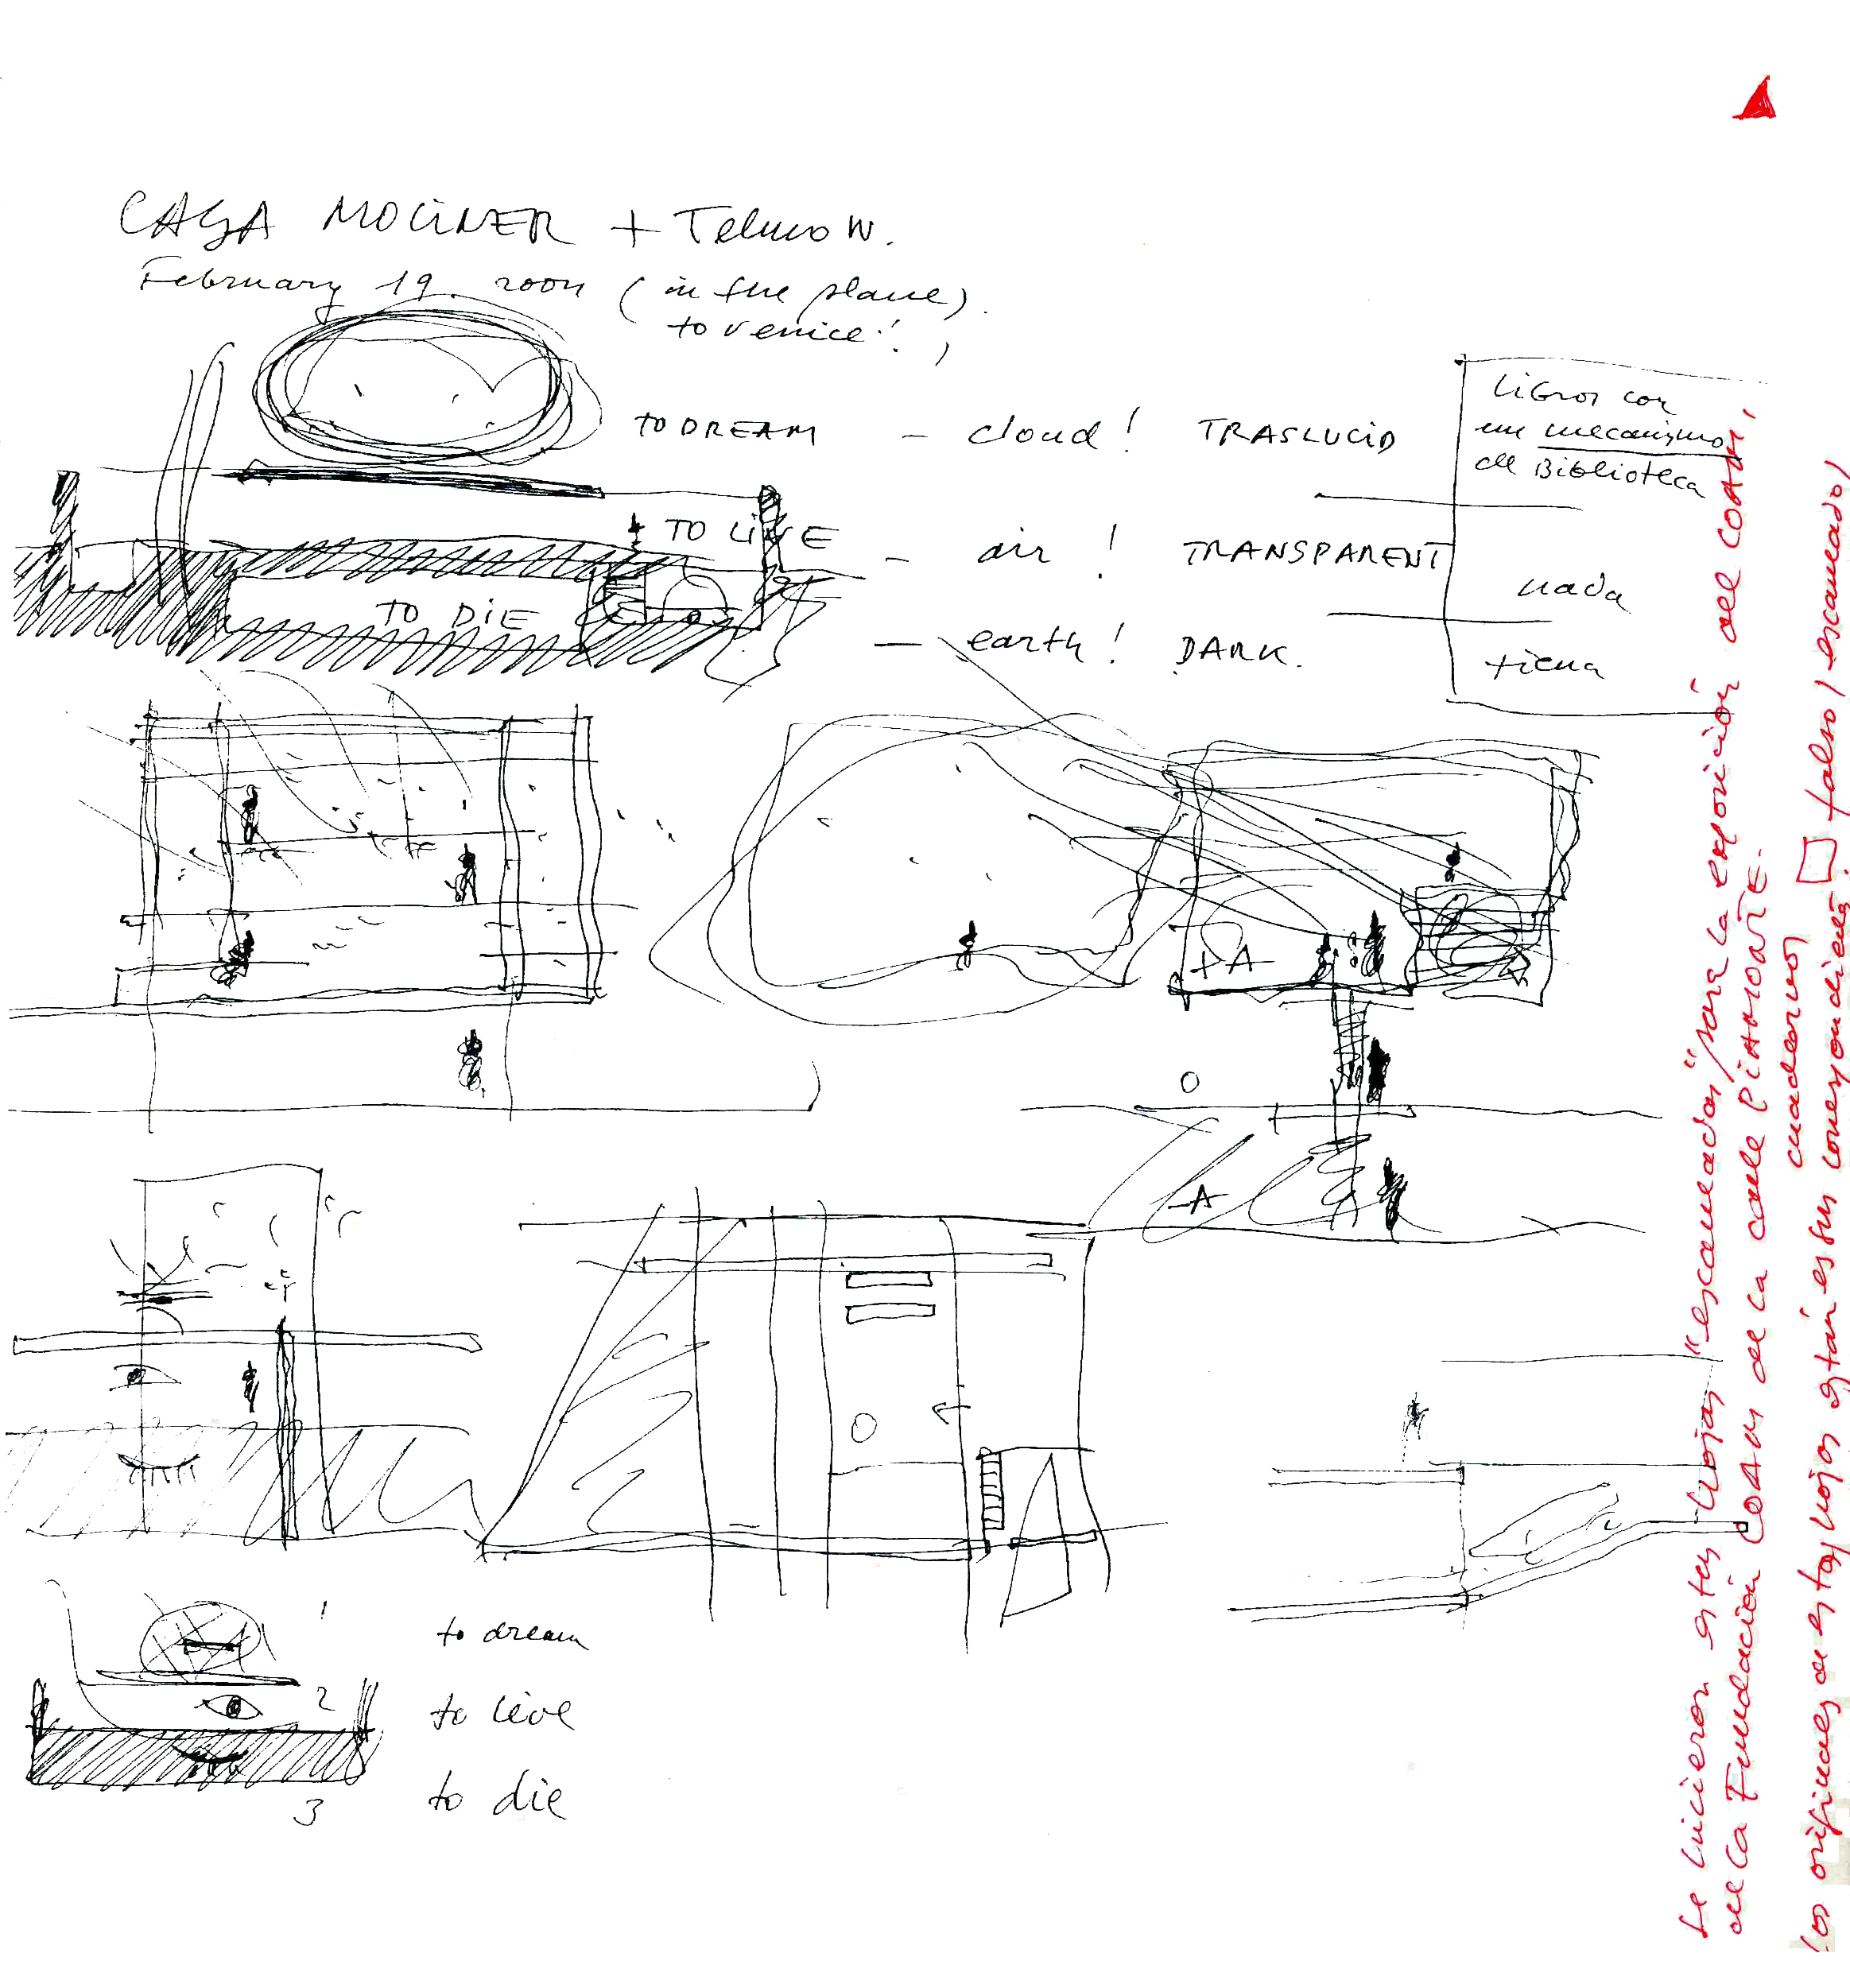 CASA MOLINER + Telmo W.
February 19. 2004 (in the plane)
to venice!
TO DREAM – cloud! TRASLUCID
Libros con
un mecanismo
de Biblioteca
TO LIVE – air! TRANSPARENT
nada
TO DIE – earth! DARK.
tierra
+A
O
-A
O
1 to dream
2 to live
3 to die
Se hicieron estas hojas "escaneadas" para la exposición del COAM,
de la Fundación COAM de la calle PIAMONTE.
cuadernos
los originales de estas hojas están es sus correspondientes falso / escaneado /